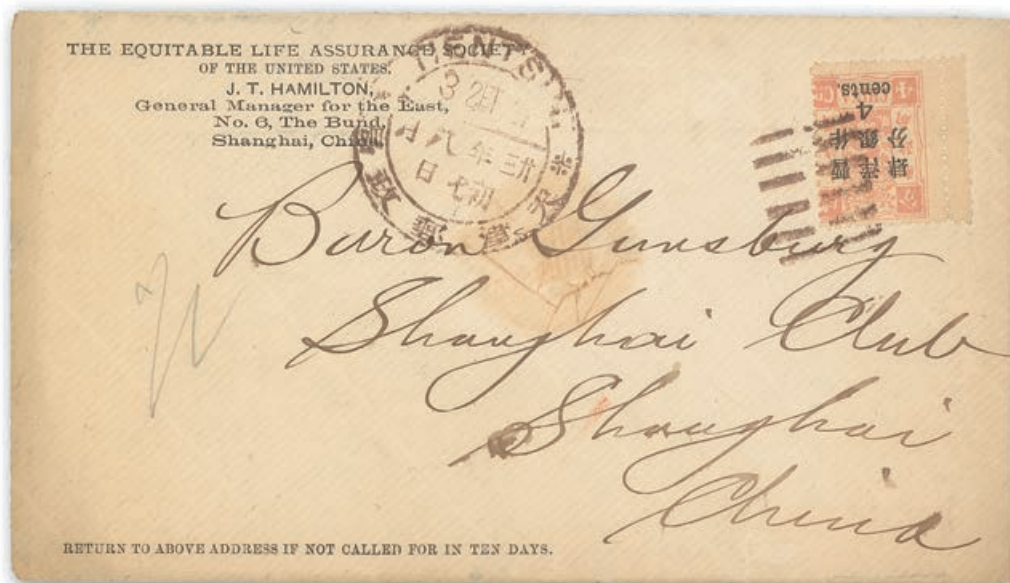 THE EQUITABLE LIFE ASSURANCE SOCIETY
OF THE UNITED STATES.
J. T. HAMILTON,
General Manager for the East,
No. 6, The Bund,
Shanghai, China.
TIENTSIN
廿三年八月
初七日
暫作洋銀肆分
4
cents.
Baron Gunsburg
Shanghai Club
Shanghai
China
RETURN TO ABOVE ADDRESS IF NOT CALLED FOR IN TEN DAYS.